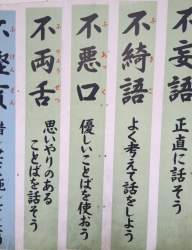 不妄語
正直に話そう
不綺語
よく考えて話をしよう
不悪口
ふあっく
優しいことばを使おう
不両舌
ふりょうぜつ
思いやりのある
ことばを話そう
不慳貪